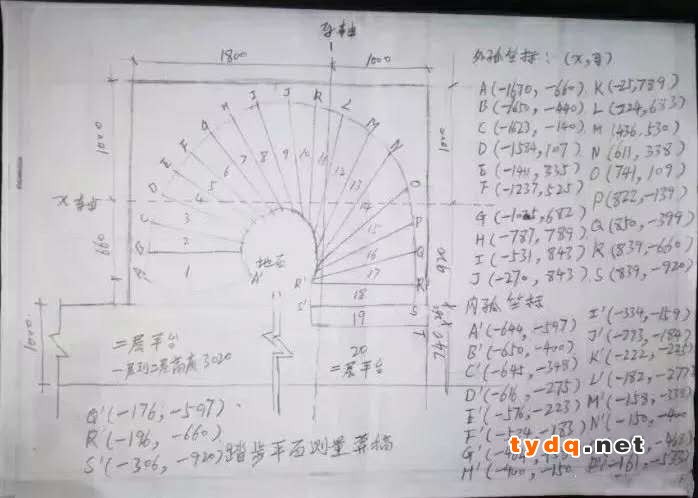 Y轴
1800
1000
外弧坐标: (x,y)
A(-1670,-660) K(-25,789)
B(-1650,-440) L(224,633)
C(-1623,-140) M(436,530)
D(-1534,107) N(611,338)
E(-1411,335) O(741,109)
F(-1237,525) P(822,-139)
G(-1025,682) Q(850,-399)
H(-787,789) R(839,-660)
I(-531,843) S(839,-920)
J(-270,843)
内弧坐标
A'(-644,-597) I'(-334,-159)
B'(-650,-400) J'(-273,-184)
C'(-645,-348) K'(-222,-225)
D'(-616,-275) L'(-182,-277)
E'(-576,-223) M'(-158,-338)
F'(-524,-183) N'(-150,-400)
H'(-400,-150
A B C D E F G H I J K L M N O P Q R S T
1 2 3 4 5 6 7 8 9 10 11 12 13 14 15 16 17 18 19 20
X轴
660
1000
920
240
地面
A'
R'
S'
二层平台
一层到二层高度3020
二层平台
Q'(-176,-597)
R'(-196,-660)
S'(-306,-920)踏步平面测量草稿
tydq.net